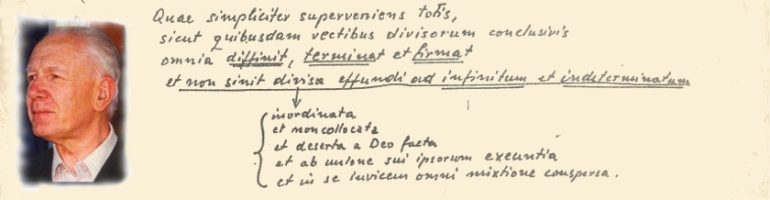 Quae simpliciter superveniens totis,
sicut quibusdam vectibus divisorum conclusivis
omnia diffinit, terminat et firmat
et non sinit divisa effundi ad infinitum et indeterminatum
inordinata
et non collocata
et deserta a Deo facta
et ab unione sui ipsorum exeuntia
et in se invicem omni mixtione conspersa.